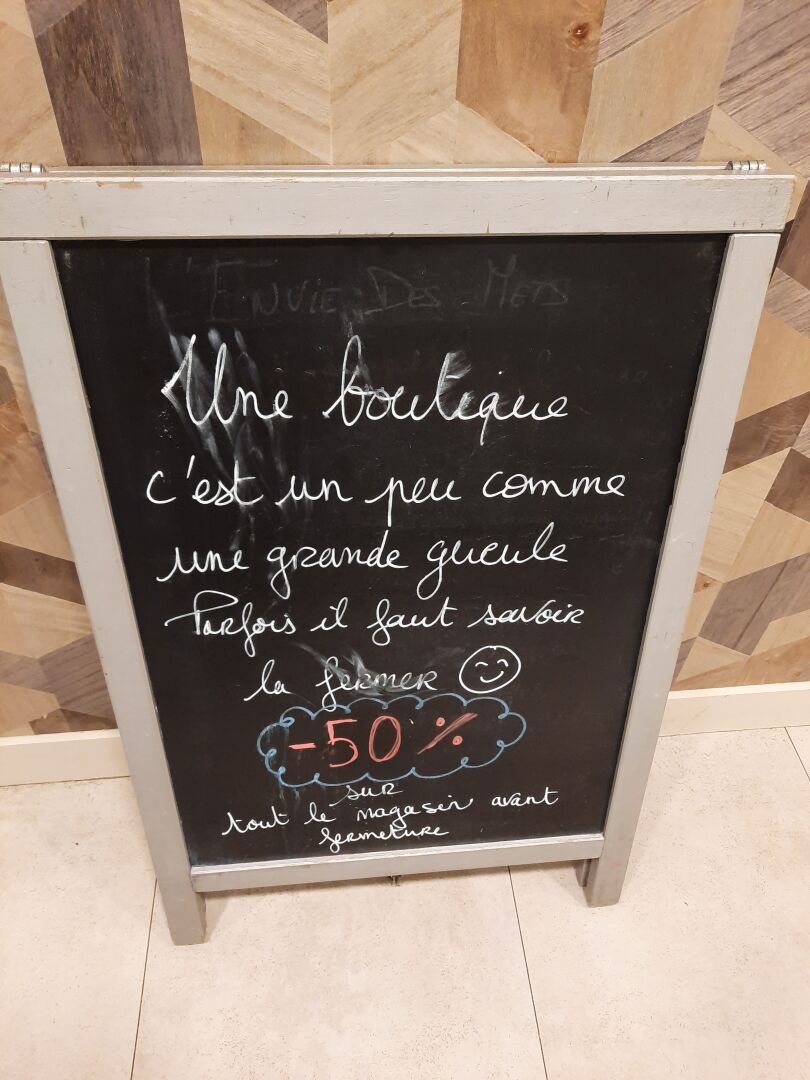 L'ENVIE DES METS
Une boutique
c'est un peu comme
une grande gueule
Parfois il faut savoir
la fermer
-50%
sur
tout le magasin avant
fermeture